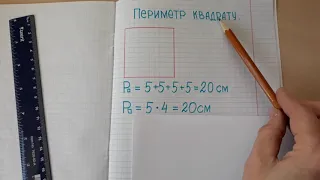 ПЕРИМЕТР КВАДРАТУ.
P▫ = 5+5+5+5=20 см
P▫ = 5 · 4 = 20 см